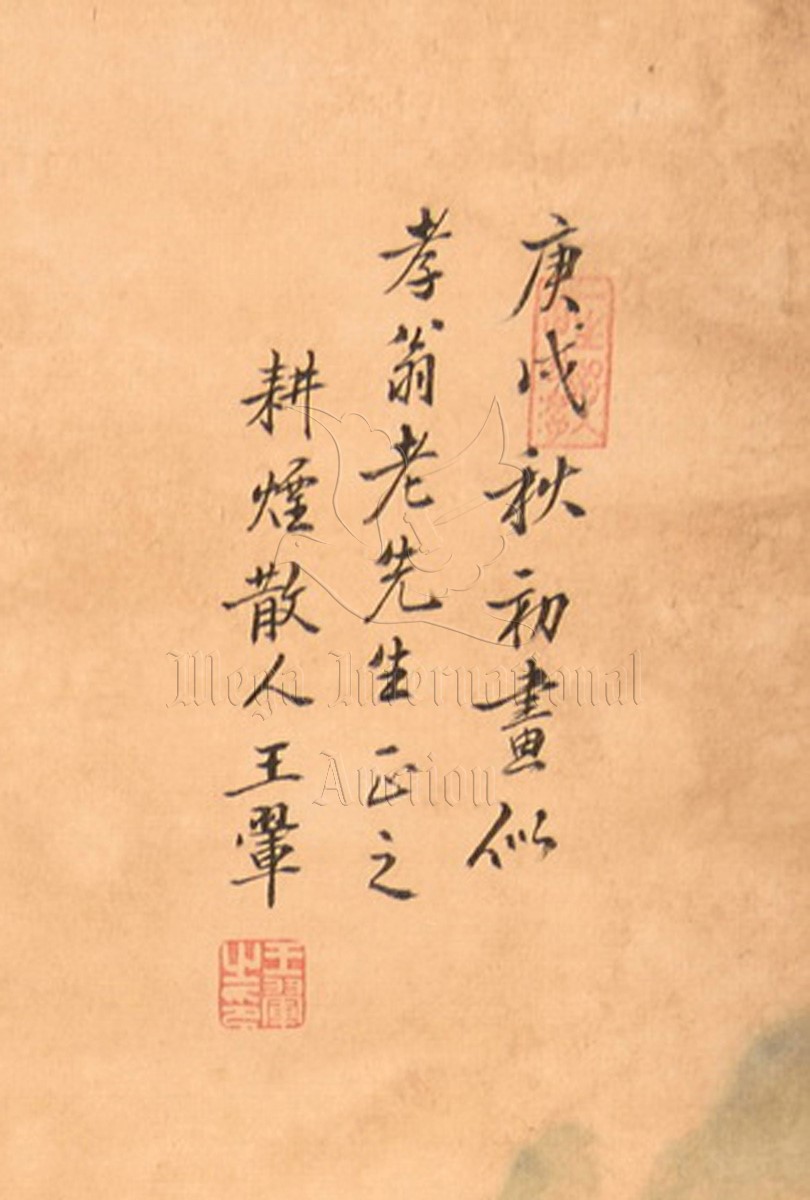 庚戌秋初畫似
孝翁老先生正之
耕煙散人王翬
王翬之印
Mega International
Auction